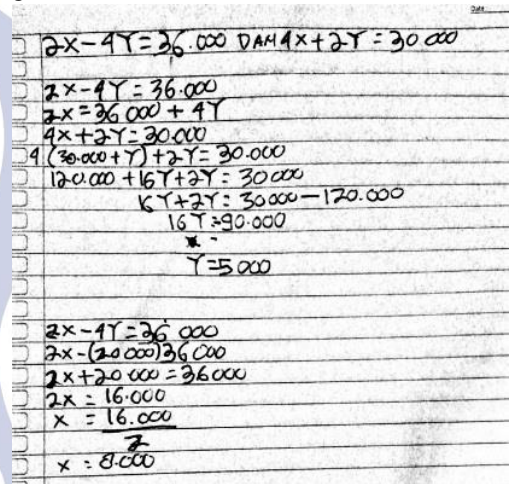 2x-4Y=36.000 DAN 4x+2Y=30000
2x-4Y=36.000
2x=36000+4Y
4x+2Y=30.000
4(30.000+Y)+2Y=30.000
120.000+16Y+2Y=30000
16Y+2Y=30000-120.000
16Y=90.000
Y=5000
2x-4Y=36000
2x-(20000)36000
2x+20000=36000
2x=16.000
x=16.000
2
x=8.000